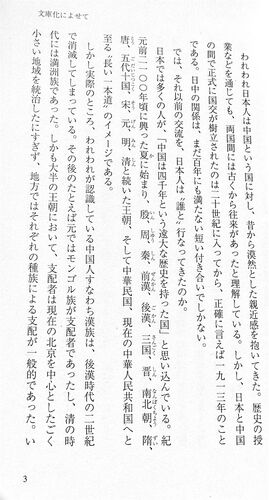 文庫化によせて
われわれ日本人は中国という国に対し、昔から漠然とした親近感を抱いてきた。歴史の授
業などを通じても、両国間には古くから往来があったと理解している。しかし、日本と中国
の間で正式に国交が樹立されたのは二十世紀に入ってから、正確に言えば一九一三年のこと
である。日中の関係は、まだ百年にも満たない短い付き合いでしかない。
では、それ以前の交流を、日本人は〝誰と〟行なってきたのか。
日本では多くの人が、「中国は四千年という遠大な歴史を持った国」と思い込んでいる。紀
元前二一〇〇年頃に興った夏に始まり、殷、周、秦、前漢、後漢、三国、晋、南北朝、隋、
唐、五代十国、宋、元、明、清と続いた王朝、そして中華民国、現在の中華人民共和国へと
至る〝長い一本道〟のイメージである。
しかし実際のところ、われわれが認識している中国人すなわち漢族は、後漢時代の二世紀
で消滅してしまっている。その後のたとえば元ではモンゴル族が支配者であったし、清の時
代には満洲族であった。しかも大半の王朝において、支配者は現在の北京を中心としたごく
小さい地域を統治したにすぎず、地方ではそれぞれの種族による支配が一般的であった。い
3